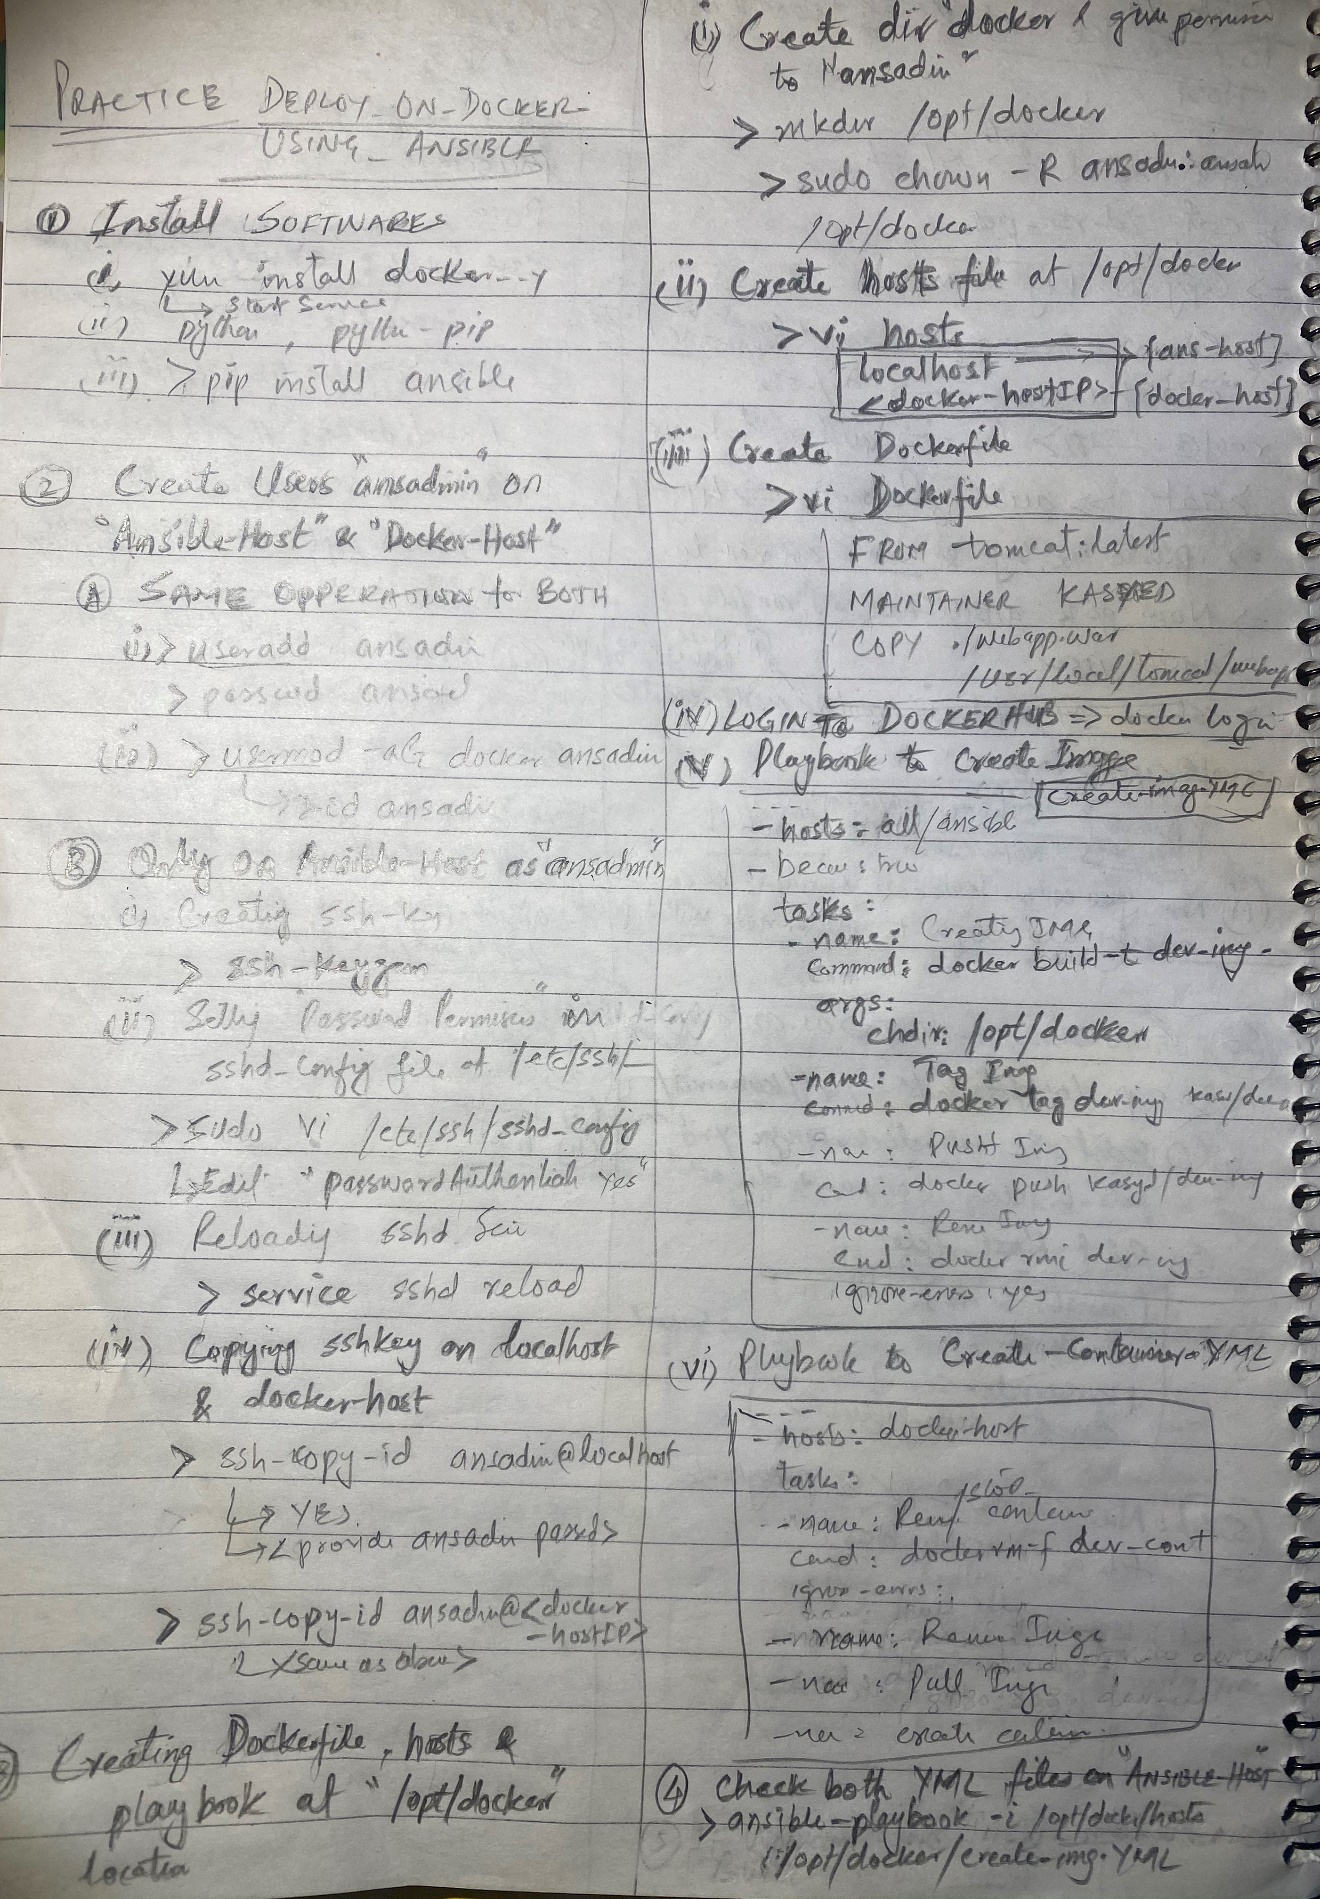 PRACTICE DEPLOY-ON-DOCKER-
USING-ANSIBLE
① Install SOFTWARES
(i) yum install docker -y
↳ Start Service
(ii) python, python-pip
(iii) > pip install ansible
② Create Users "ansadmin" on
"Ansible-Host" & "Docker-Host"
Ⓐ SAME OPPERATION to BOTH
(i) > useradd ansadmin
> passwd
(ii) > usermod -aG docker ansadmin
↳ > id ansadmin
③ Only on Ansible-Host as "ansadmin"
(i) Creating ssh-key
> ssh-keygen
(ii) Setting "Password Permission" in
sshd_config file at /etc/ssh/
> sudo vi /etc/ssh/sshd_config
↳ Edit "passwordAuthentication yes"
(iii) Reloading sshd
> service sshd reload
(iv) Copying sshkey on localhost
& docker-host
> ssh-copy-id ansadmin@localhost
↳ YES
↳ <provide ansadmin >
> ssh-copy-id ansadmin@<docker
-hostIP>
↳ <same as above>
Creating Dockerfile, hosts &
playbook at "/opt/docker"
location
(i) Create dir "docker & give permission
to "ansadmin"
> mkdir /opt/docker
> sudo chown -R ansadmin:
/opt/docker
(ii) Create hosts file at /opt/docker
> vi hosts
localhost → [ans-host]
<docker-hostIP> - [docker-host]
(iii) Create Dockerfile
> vi Dockerfile
FROM tomcat:latest
MAINTAINER
COPY ./webapp.war
/usr/local/tomcat/webapps
(iv) LOGIN TO DOCKERHUB => docker login
(v) Playbook to Create Image
create-image.YML
---
- hosts: all/ansible
- become: true
tasks:
- name: Creating IMG
command: docker build -t dev-img .
args:
chdir: /opt/docker
- name: Tag Image
command: docker tag dev-img
- name: PUSH Img
cmd: docker push /dev-img
- name: Remove Img
cmd: docker rmi dev-img
ignore-errors: yes
(vi) Playbook to Create-Container.YML
---
- hosts: docker-host
tasks:
- name: Remove/stop container
cmd: docker rm -f dev-cont
ignore-errors:
- name: Remove Image
- name: Pull Image
- name: create container
④ Check both YML files on "ANSIBLE-HOST"
> ansible-playbook -i /opt/docker/hosts
/opt/docker/create-img.YML